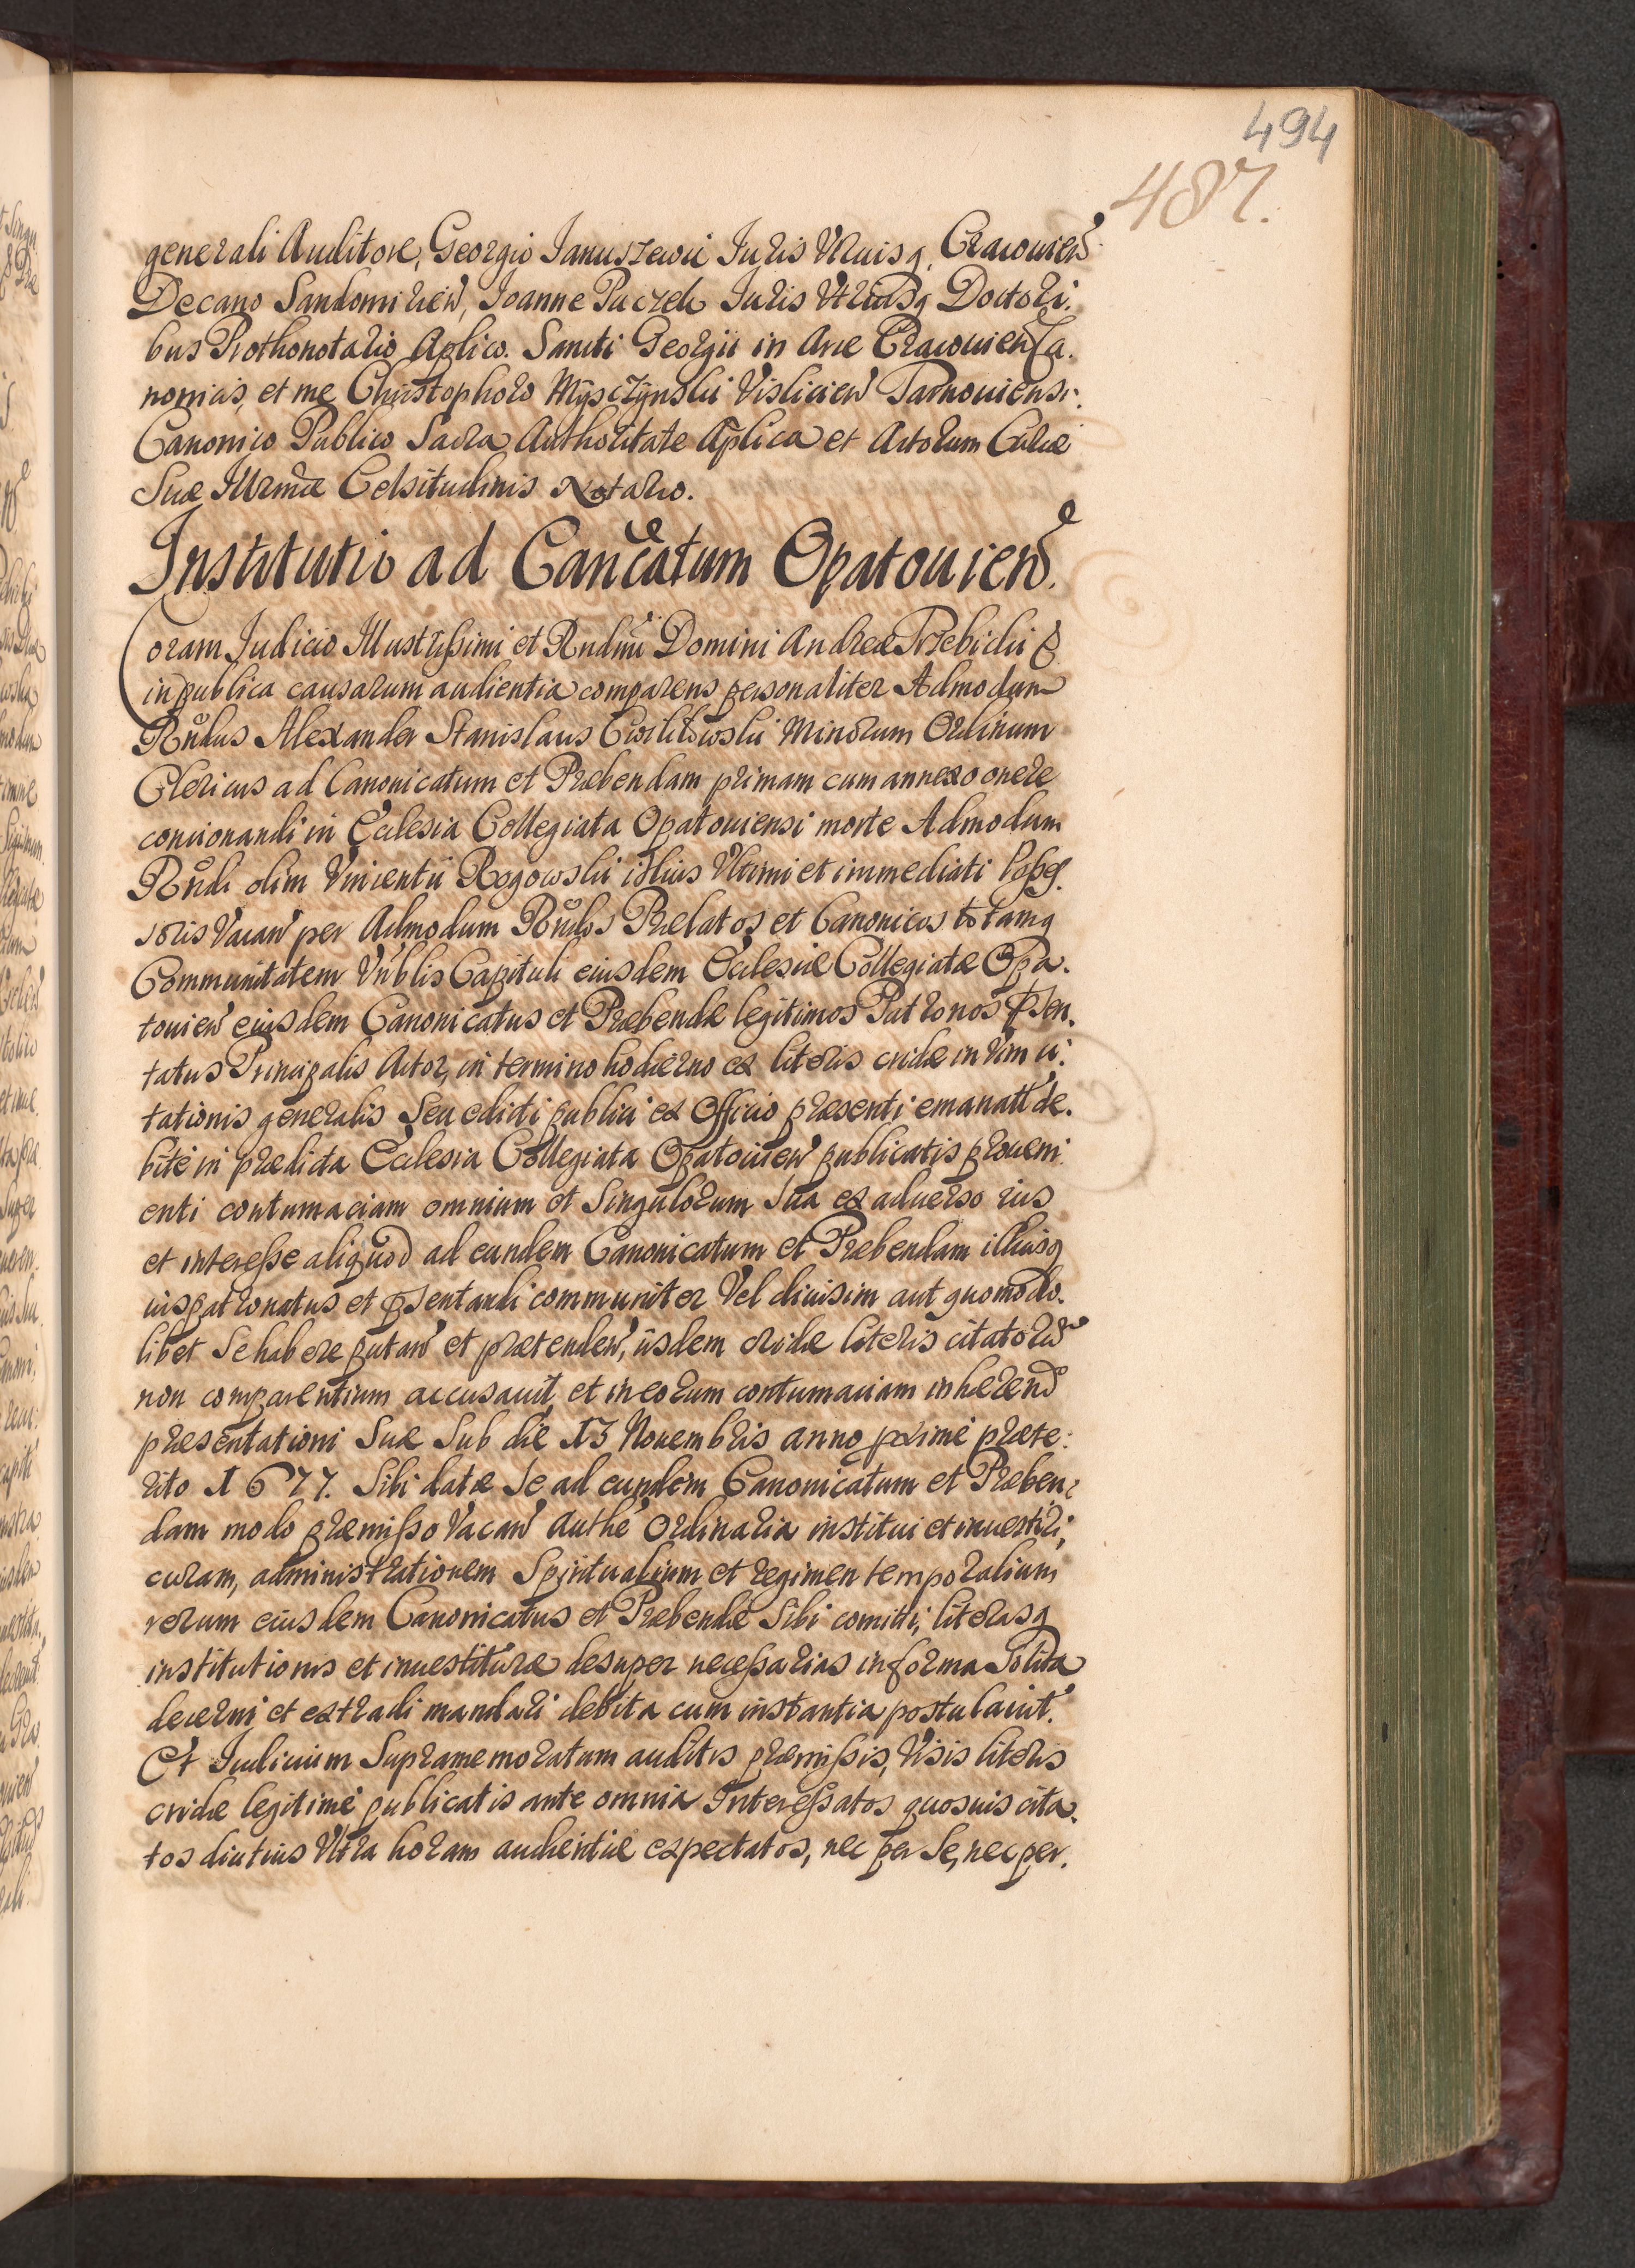 494
487.
generali Auditore, Georgio Januszewic Juris Vtruisq, Cracouien
Decano Sandomirien, Joanne Paczek Juris Vtriusq Doctori:
bus Prothonotario Aplico. Sancti Georgii in Arce Cracouien Ca.
nonicis, et me Christophoro Mysczynski Vislicien Tarnouiensi:
Canonico Publico Sacra Authoritate Aplica et Actorum Curiæ
Suæ Illrmæ Celsitudinis Notario.
Institutio ad Cancatum Opatouien.
Coram Judicio Illustrissimi et Rndmi Domini Andreæ Trzebicki &
in publica causarum audientia comparens personaliter Admodum
Rndus Alexander Stanislaus Minorum Ordinum
Clericus ad Canonicatum et Præbendam primam cum annexo onere
concionandi in Ecclesia Collegiata Opatouiensi morte Admodum
Rndi olim Vincentii Rogowski illius Vltimi et immediati Posses.
soris Vacan per Admodum Rndos Prelatos et Canonicos totamq
Communitatem Vnblis Capituli eiusdem Ecclesiæ Collegiatæ Opa.
touien eiusdem Canonicatus et Præbendæ legitimos Patronos psen.
tatus Principalis Actor, in termino hodierno ex literis cridæ in Vim ci:
tationis generalis Seu edicti publici ex Officio præsenti emanatt de.
bité in prædicta Ecclesia Collegiata Opatouien publicatis proueni
enti contumaciam omnium et Singulorum Sua ex aduerso ius
et interesse aliquod ad eundem Canonicatum et Præbendam illiusq
iuspatronatus et psentandi communiter Vel diuisim aut quomodo.
libet Se habere putan et prætenden, iisdem cridæ literis citatorum
non comparentium accusauit, et in eorum contumaciam inhærend
præsentationi Suæ Sub die 13 Nouembris anno pximé præte:
rito 1677. Sibi datæ Se ad eundem Canonicatum et Præben:
dam modo præmisso Vacan Authe Ordinaria institui et inuestiri,
curam, administrationem Spiritualium et regimen temporalium
rerum eiusdem Canonicatus et Præbendæ Sibi comitti, literasq
institutionis et inuestituræ desuper necessarias in forma Solita
decerni et extradi mandari debita cum instantia postulauit.
Et Judicium Supramemoratum auditis præmissis, Visis literis
cridæ legitimé publicatis ante omnia Interessatos quosuis cita.
tos diutius Vltra horam audientiæ expectatos, nec per Se, nec per.